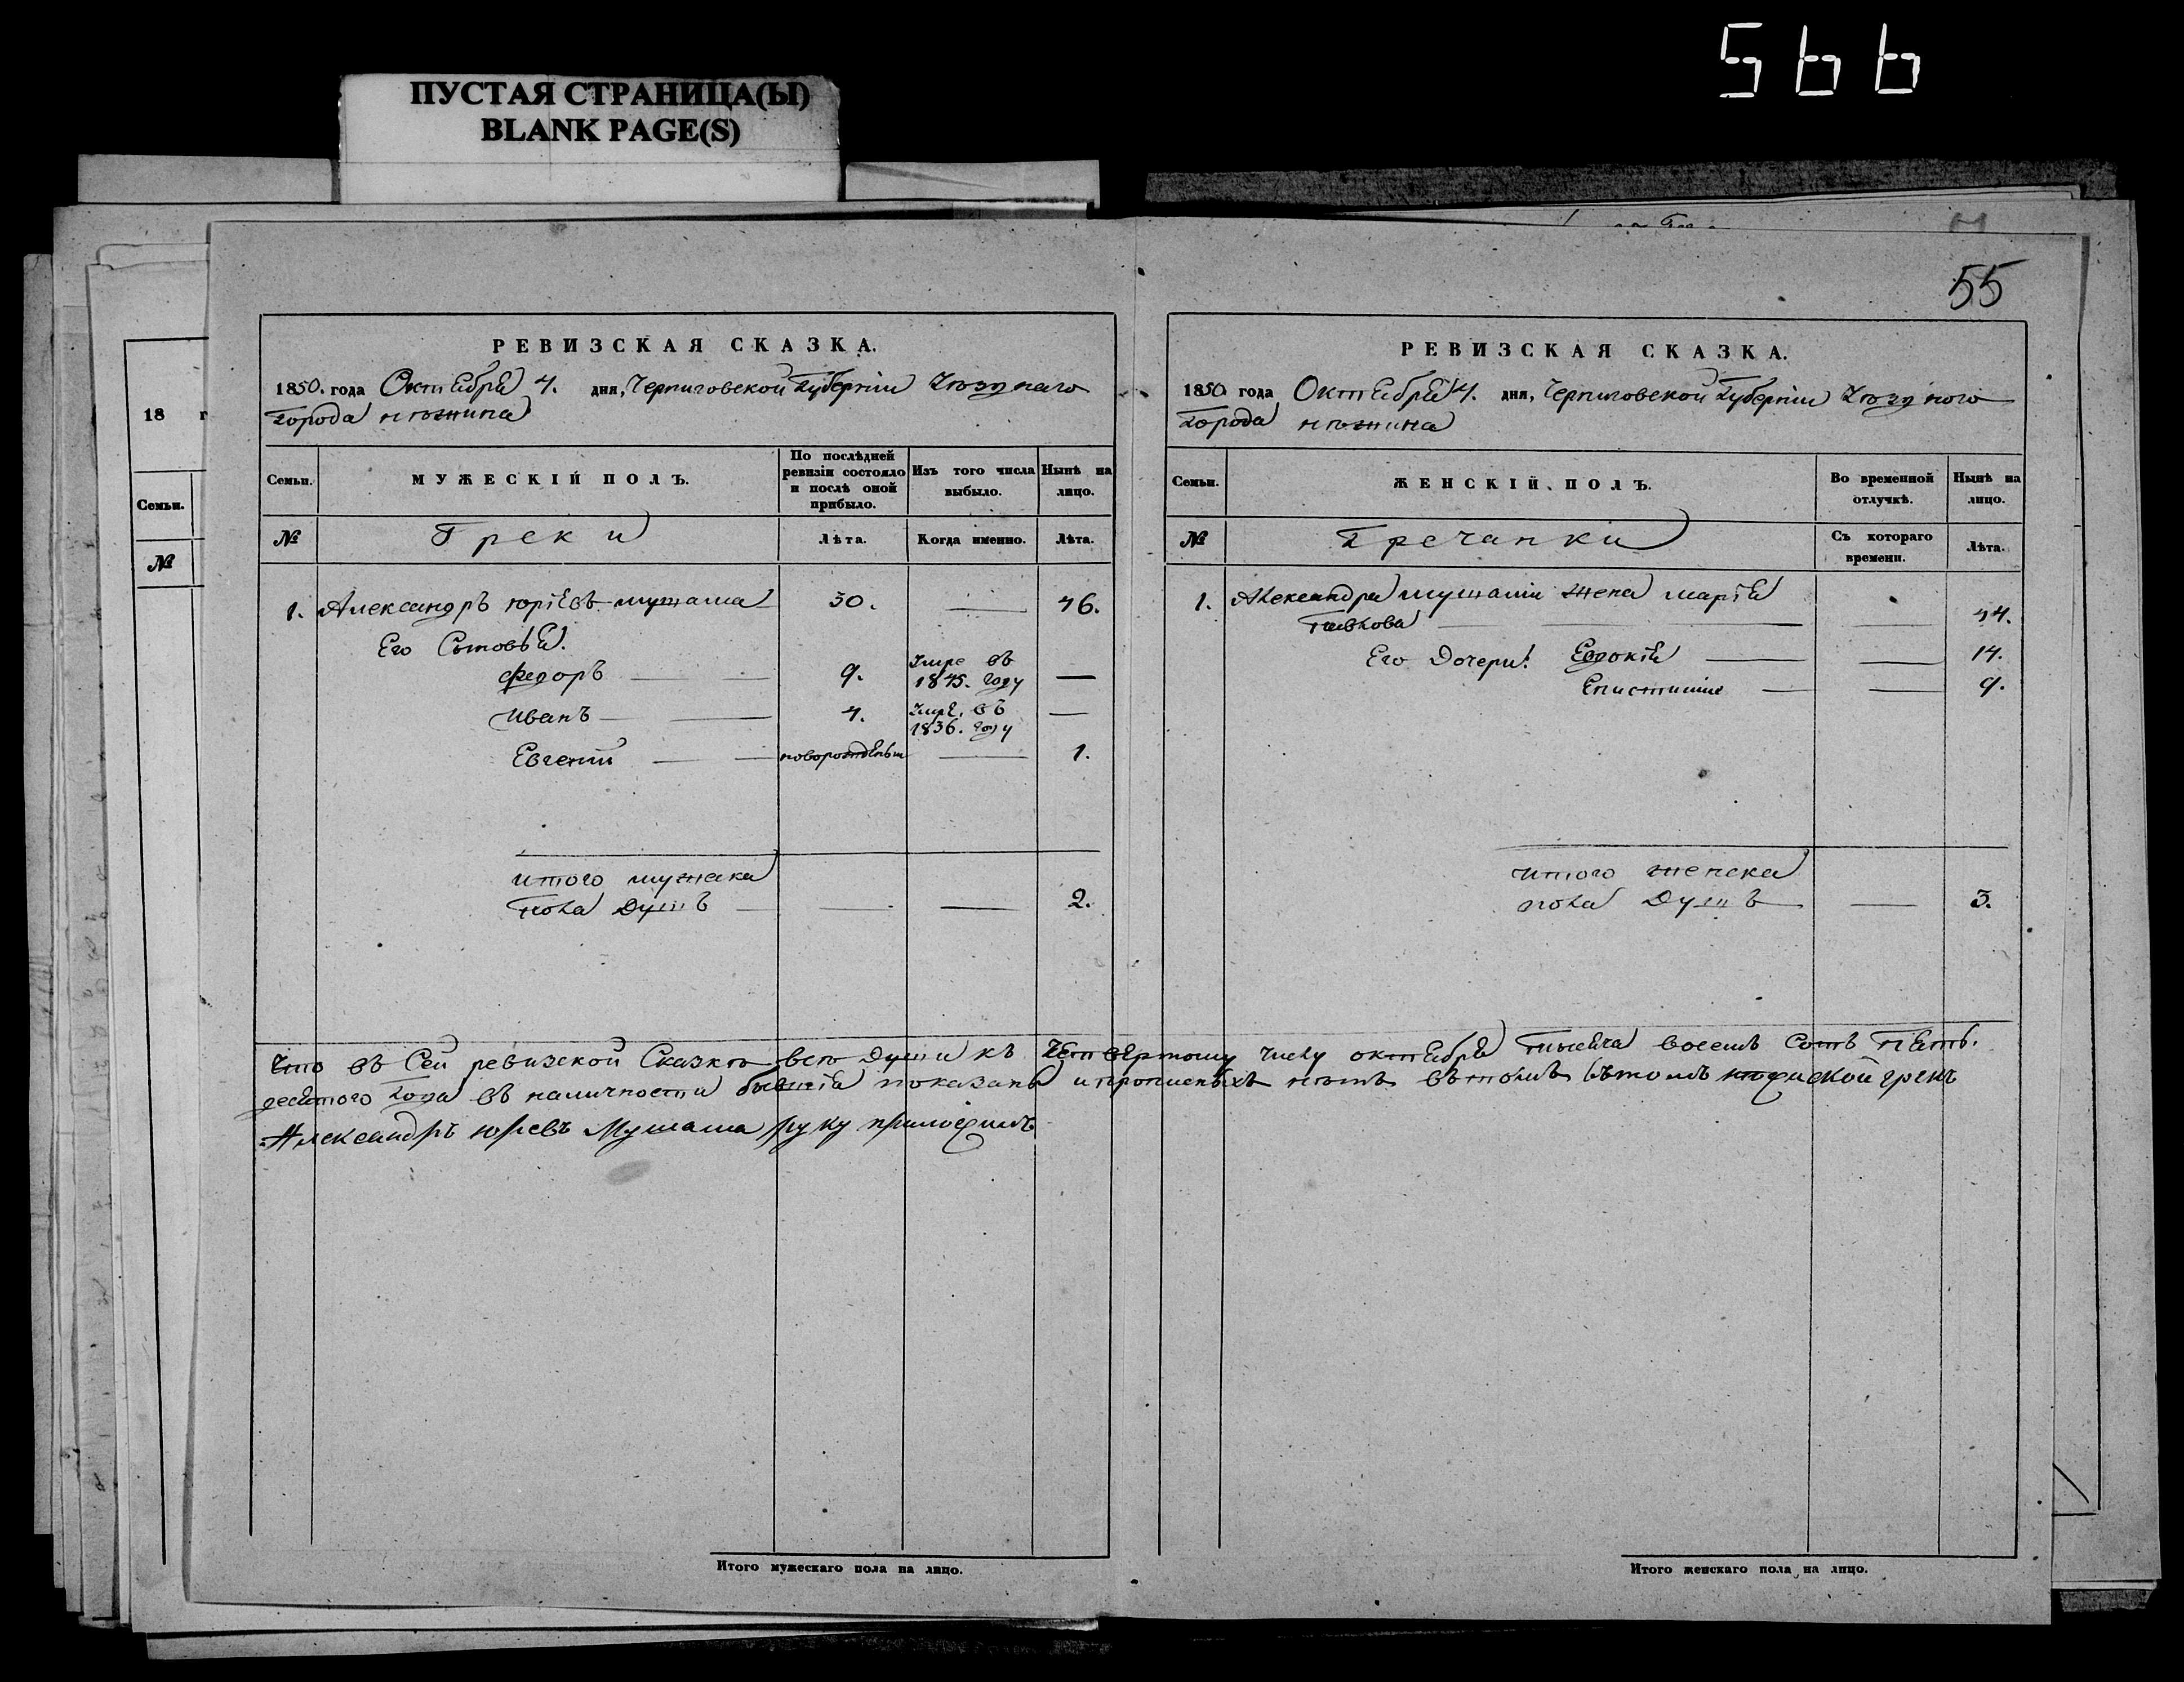 566
ПУСТАЯ СТРАНИЦА(Ы)
BLANK PAGE(S)
55
18 г
Семьи.
№
РЕВИЗСКАЯ СКАЗКА.
1850. года Октября 4. дня, Черниговской Губерніи Уѣзднаго
Города Нѣжина
Семьи.
МУЖЕСКІЙ ПОЛЪ.
По послѣдней ревизіи состояло и послѣ оной прибыло.
Изъ того числа выбыло.
Нынѣ на лицо.
№
Греки
Лѣта.
Когда именно.
Лѣта.
1. Александръ Юріевъ 30. — 46.
Его Сыновья:
Федоръ — 9. Умре въ 1845. году —
Иванъ — 4. Умре въ 1836. году —
Евгеній — — 1.
Итого мужска
пола душъ — — — 2.
РЕВИЗСКАЯ СКАЗКА.
1850 года Октября 4. дня, Черниговской Губерніи Уѣздного
Города Нѣжина
Семьи.
ЖЕНСКІЙ ПОЛЪ.
Во временной отлучкѣ.
Нынѣ на лицо.
№
Гречанки
Съ котораго времени.
Лѣта.
1. Александра жена Марія
— — 44.
Его Дочери: Евдокія — — 14.
— — 9.
Итого женска
пола Душъ — 3.
Что въ Сей ревизской Сказкѣ всѣ Души къ Четвертому Числу октября тысяча восемъ Сотъ пять.
десятого Года въ наличности бывшія показаны и прописныхъ нѣтъ въ томъ грекъ
Александръ Юревъ руку приложилъ
Итого мужескаго пола на лицо.
Итого женскаго пола на лицо.